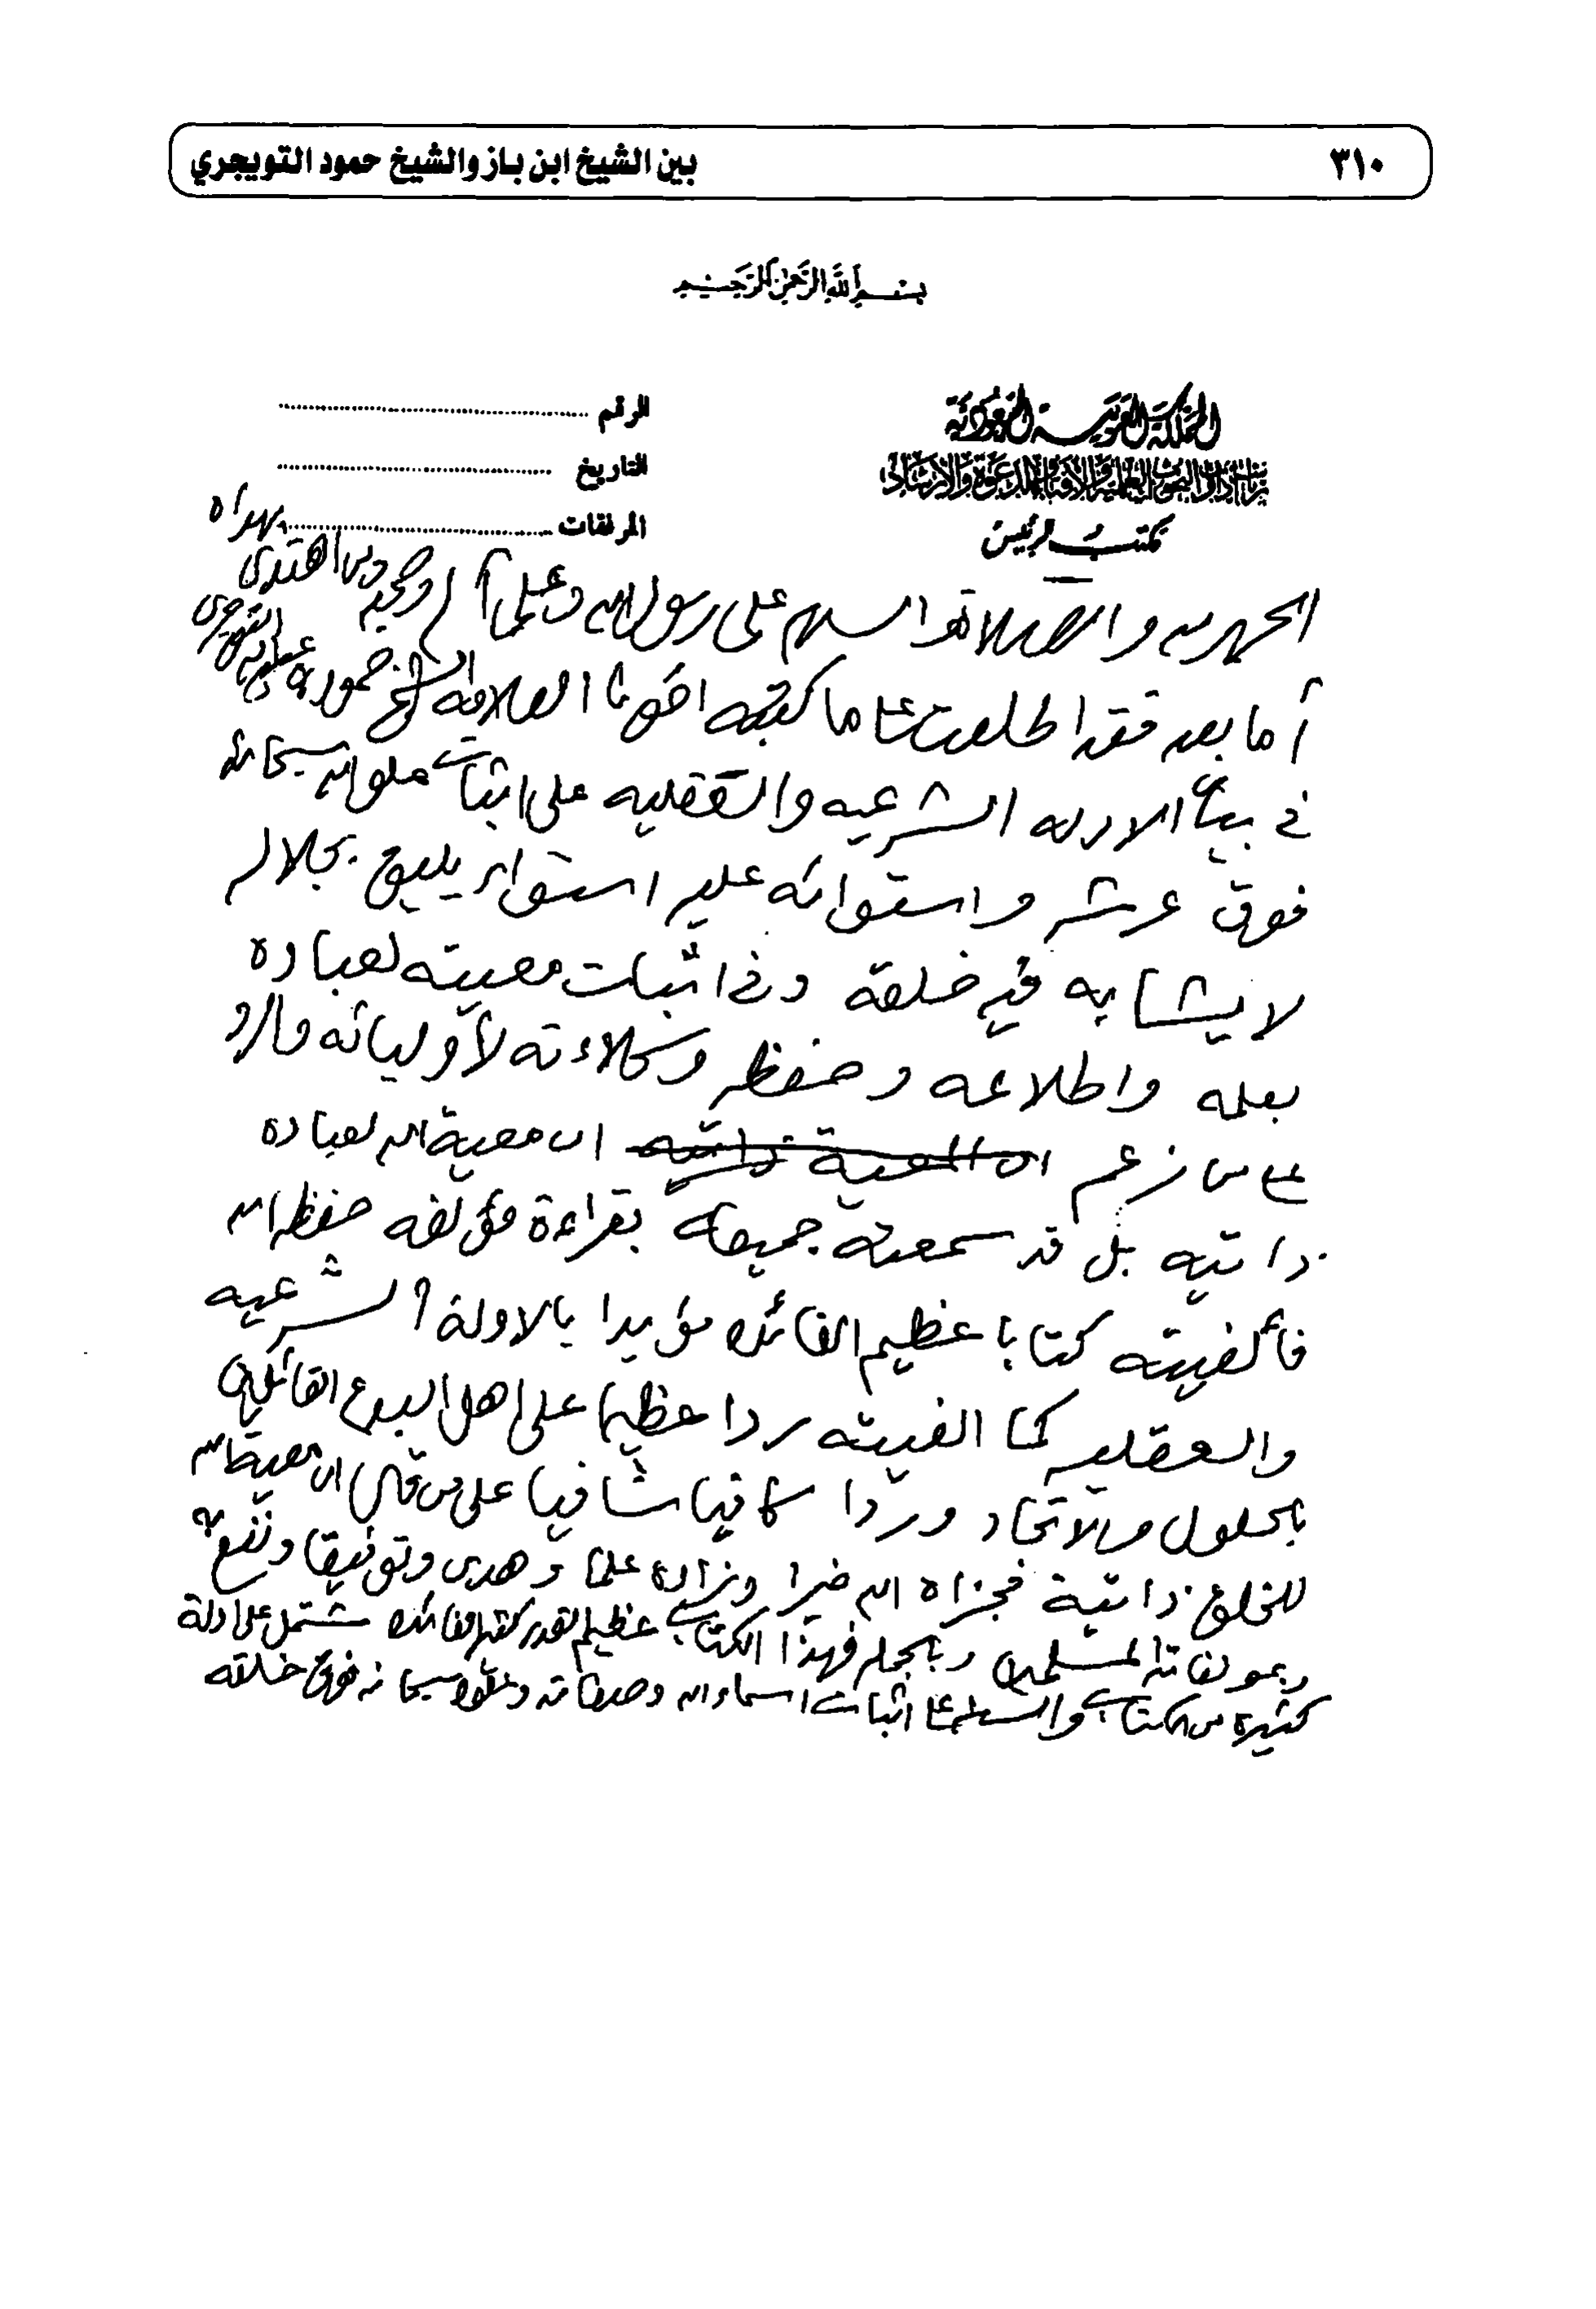 ٣١٠
بين الشيخ ابن باز والشيخ حمود التويجري
بسم الله الرحمن الرحيم
المملكة العربية السعودية
رئاسة إدارات البحوث العلمية والإفتاء والدعوة والإرشاد
مكتب الرئيس
الرقم
التاريخ
المرفقات
الحمد لله والصلاة والسلام على رسول الله وعلى آله وصحبه ومن اهتدى بهداه
أما بعد فقد اطلعت على ما كتبه اخونا العلامة الشيخ حمود بن عبدالله التويجري
في بيان الادلة الشرعيه والعقليه على اثبات علو الله سبحانه
فوق عرشه واستوائه عليه استواء يليق بجلاله
لا يشابه فيه خلقه وفي اثبات معيته لعباده
بعلمه واطلاعه وحفظه وكلاءته لأوليائه والرد
على من زعم ان المعية ذاتيه ان معية الله لعباده
ذاتيه بل قد سمعته جميعه بقراءة مؤلفه حفظه الله
فألفيته كتابا عظيم الفائدة مؤيدا بالادلة الشرعيه
والعقليه كما الفيته ردا عظيما على اهل البدع القائلين
بالحلول والاتحاد وردا كافيا شافيا على من قال ان معية الله
للخلق ذاتية فجزاه الله خيرا وزاده علما وهدى وتوفيقا ونفع به
وبمؤلفاته المسلمين وبالجملة فهذا الكتاب عظيم القدر كثير الفائدة مشتمل على ادلة
كثيرة من الكتاب والسنة على اثبات اسماء الله وصفاته وعلوه سبحانه فوق خلقه